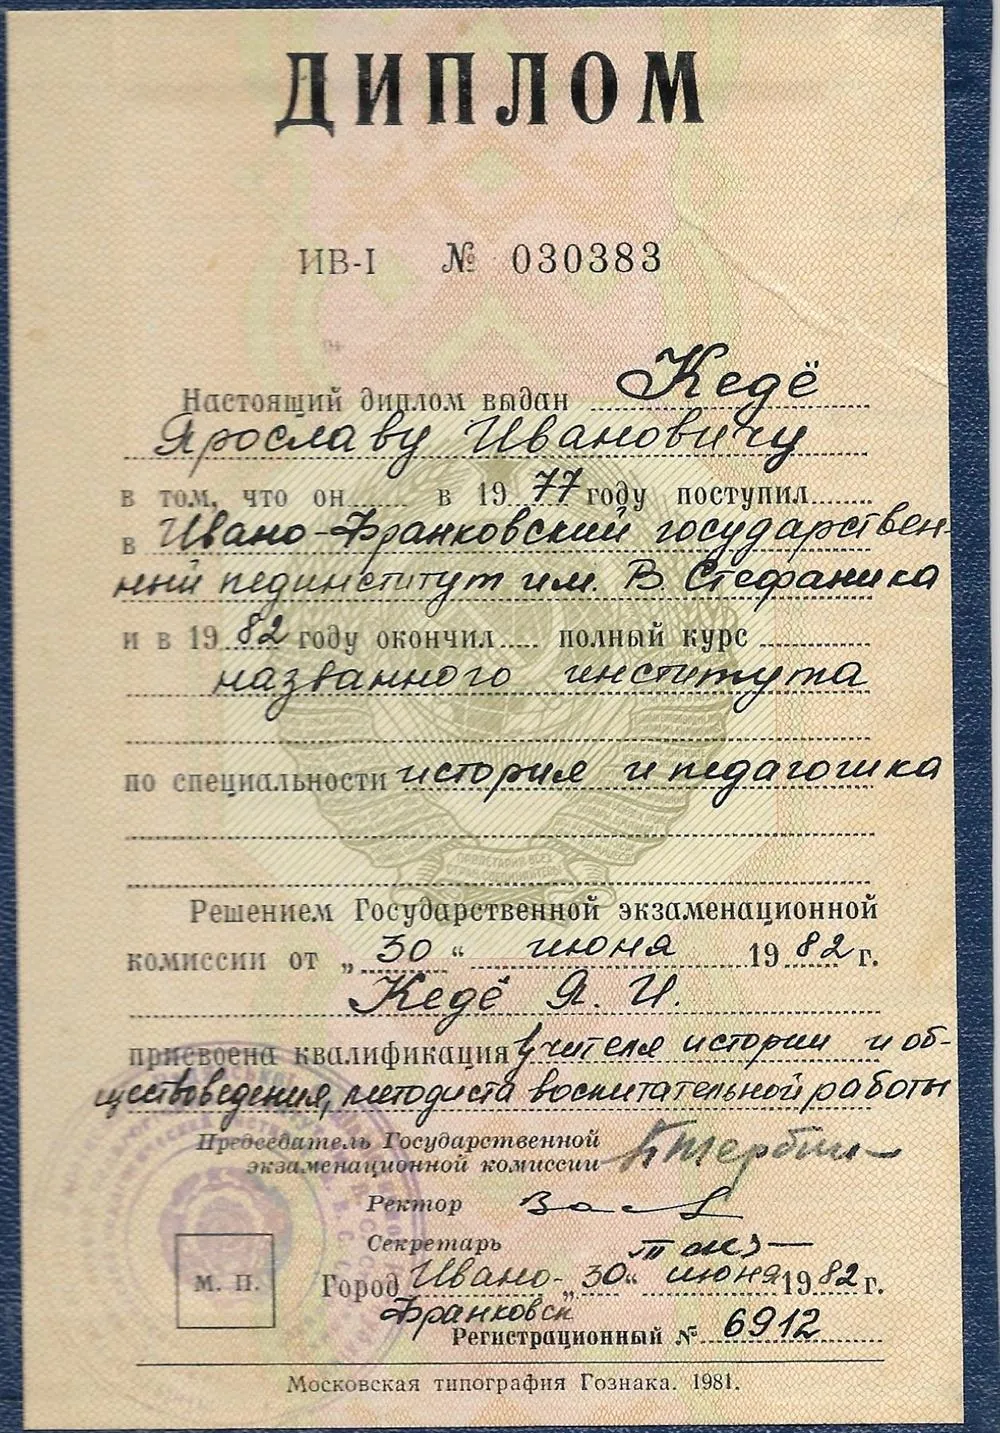 ДИПЛОМ
ИВ-I № 030383
Настоящий диплом выдан Кедё
Ярославу Ивановичу
в том, что он в 1977 году поступил
в Ивано-Франковский государствен-
ный пединститут им. В. Стефаника
и в 1982 году окончил полный курс
названного института
по специальности история и педагогика
Решением Государственной экзаменационной
комиссии от „30“ июня 1982 г.
Кедё Я. И.
присвоена квалификация учителя истории и об-
ществоведения, методиста воспитательной работы
Председатель Государственной
экзаменационной комиссии
Ректор
Секретарь
М. П.
Город Ивано- „30“ июня 1982 г.
Франковск
Регистрационный № 6912
Московская типография Гознака. 1981.